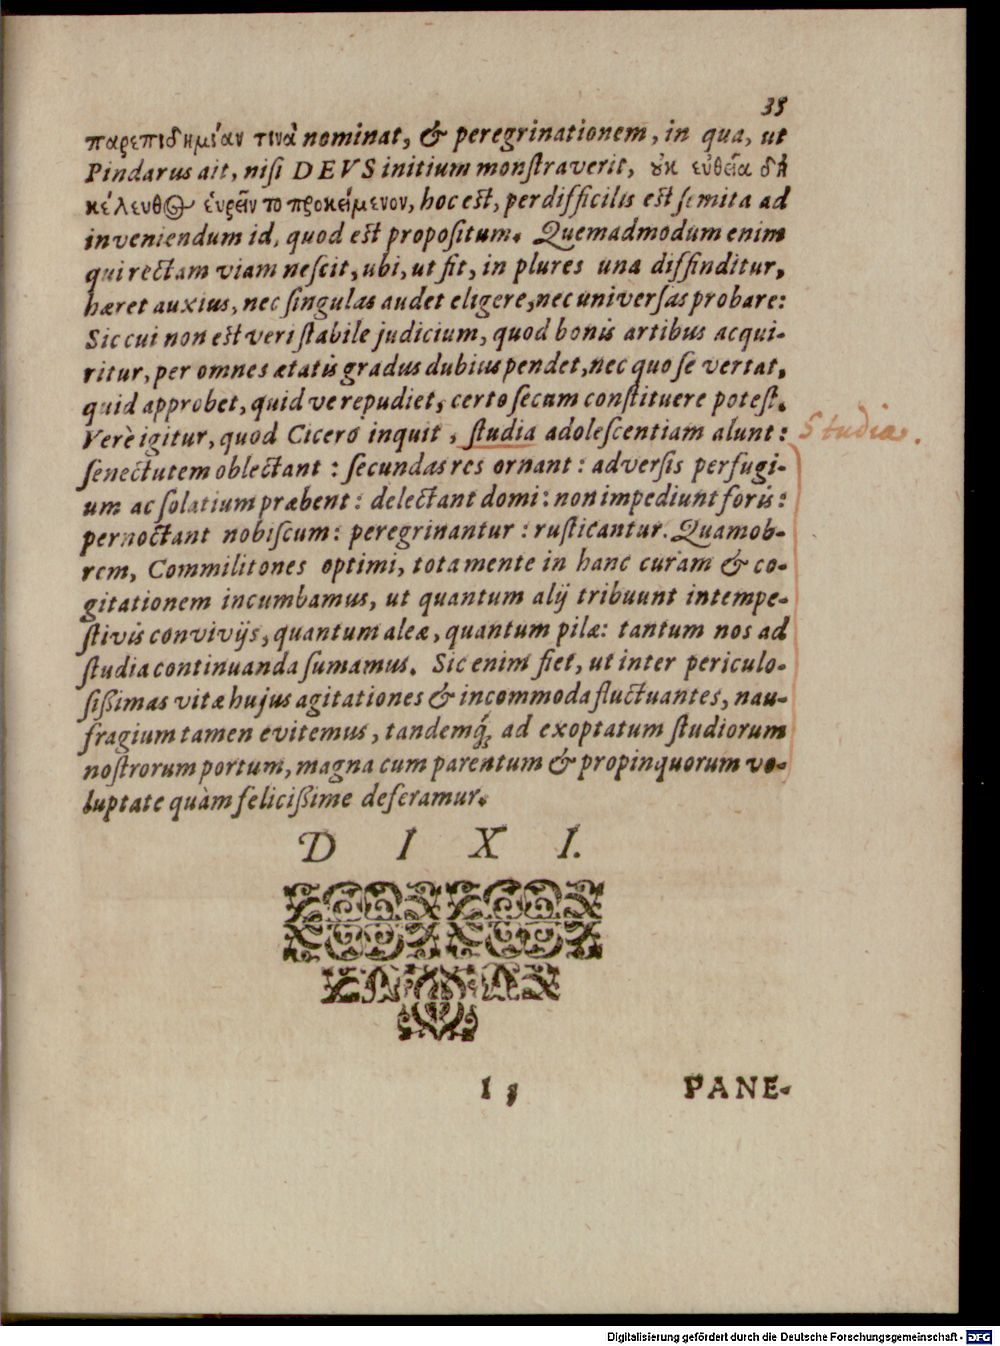 35
παρεπιδημίαν τινὰ nominat, & peregrinationem, in qua, ut
Pindarus ait, niſi DEVS initium monſtraverit, ȣκ εὐθεῖα δὴ
κέλευθος ἑυρεῖν το προκείμενον, hoc eſt, perdifficilis eſt ſemita ad
inveniendum id, quod eſt propoſitum. Quemadmodum enim
qui rectam viam neſcit, ubi, ut fit, in plures una diffinditur,
hæret auxius, nec ſingulas audet eligere, nec univerſas probare:
Sic cui non eſt veri ſtabile judicium, quod bonis artibus acqui-
ritur, per omnes ætatis gradus dubius pendet, nec quo ſe vertat,
quid approbet, quid ve repudiet, certo ſecum conſtituere poteſt.
Verè igitur, quod Cicero inquit, ſtudia adoleſcentiam alunt:
Studia.
ſenectutem oblectant: ſecundas res ornant: adverſis perfugi-
um ac ſolatium præbent: delectant domi: non impediunt foris:
pernoctant nobiſcum: peregrinantur: ruſticantur. Quamob-
rem, Commilitones optimi, tota mente in hanc curam & co-
gitationem incumbamus, ut quantum alij tribuunt intempe-
ſtivis convivijs, quantum aleæ, quantum pilæ: tantum nos ad
ſtudia continuanda ſumamus. Sic enim fiet, ut inter periculo-
ſiſſimas vitæ hujus agitationes & incommoda fluctuantes, nau-
fragium tamen evitemus, tandemq́; ad exoptatum ſtudiorum
noſtrorum portum, magna cum parentum & propinquorum vo-
luptate quàm feliciſſime deferamur.
D I X I.
I 3
PANE-
Digitalisierung gefördert durch die Deutsche Forschungsgemeinschaft - DFG